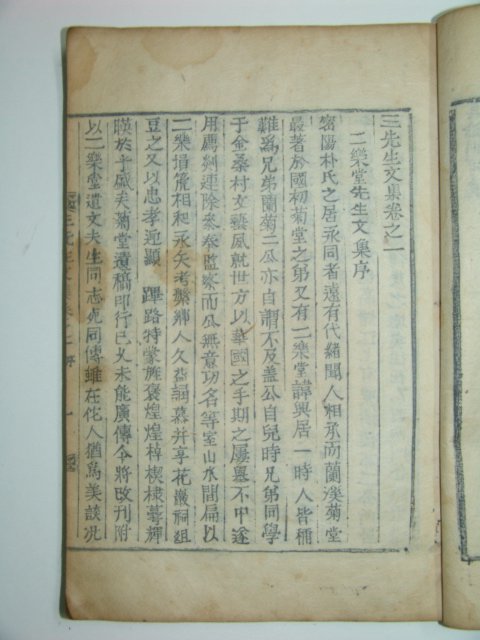 三先生文集卷之一
二樂堂先生文集序
密陽朴氏之居永同者遠有代緒聞人相承而蘭溪菊堂
最著於國初菊堂之弟又有二樂堂諱興居一時人皆稱
難爲兄弟蘭菊二公亦自謂不及盖公自兒時兄弟同學
于金桑村文藝夙就世方以華國之手期之屢擧不中遂
用薦剡連除參奉監察而公無意功名等室山水間扁以
二樂塤篪相和永矢考槃鄕人久益謌慕并享花巖祠俎
豆之又以忠孝迎顯 蹕路特蒙旌褒煌煌棹楔棣萼輝
暎於乎盛矣菊堂遺稿印行已久未能廣傳今將改刊附
以二樂堂遺文夫生同志死同傳雖在佗人猶爲美談况
三先生文集 序 一